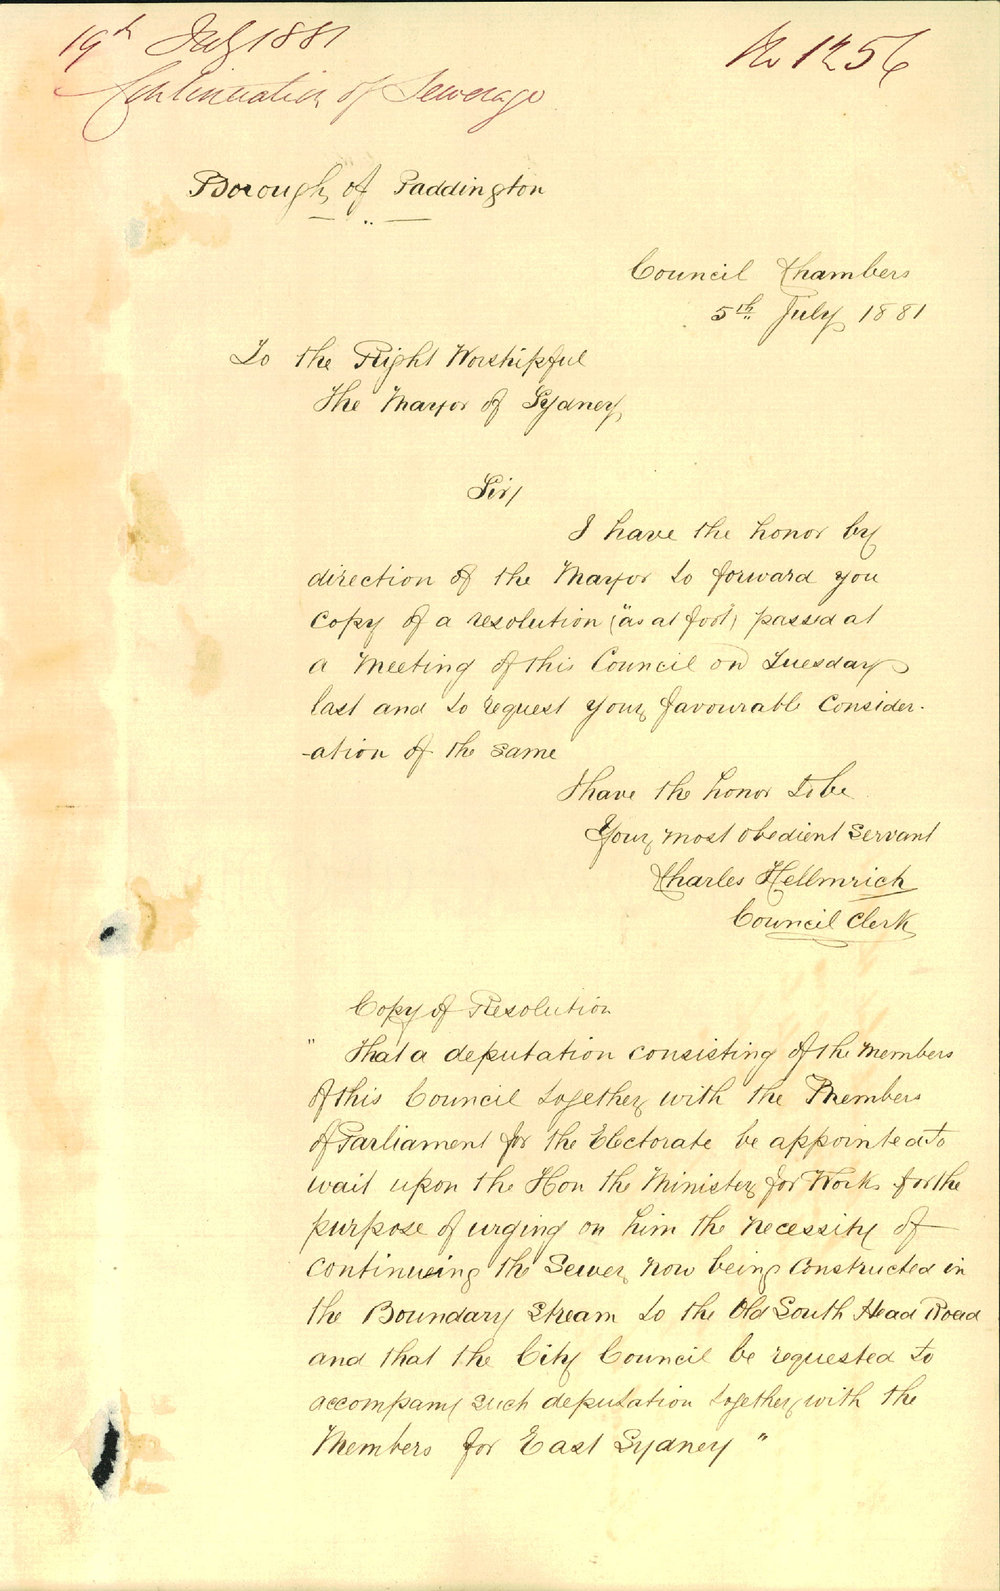 19th July 1881
No 1256
Continuation of Sewerage
Borough of Paddington
Council Chambers
5th July 1881
To the Right Worshipful
The Mayor of Sydney
Sir/
I have the honor by
direction of the Mayor to forward you
copy of a resolution ("as at foot) passed at
a Meeting of this Council on Tuesday
last and to request your favourable consider-
-ation of the same
I have the honor to be
Your most obedient servant
Charles Hellmrich
Council Clerk
Copy of Resolution
" That a deputation consisting of the members
of this Council together with the Members
of Parliament for the Electorate be appointed to
wait upon the Hon the Minister for Works for the
purpose of urging on him the necessity of
continueing the Sewer now being constructed in
the Boundary Stream to the Old South Head Road
and that the City Council be requested to
accompany such deputation together with the
Members for East Sydney "